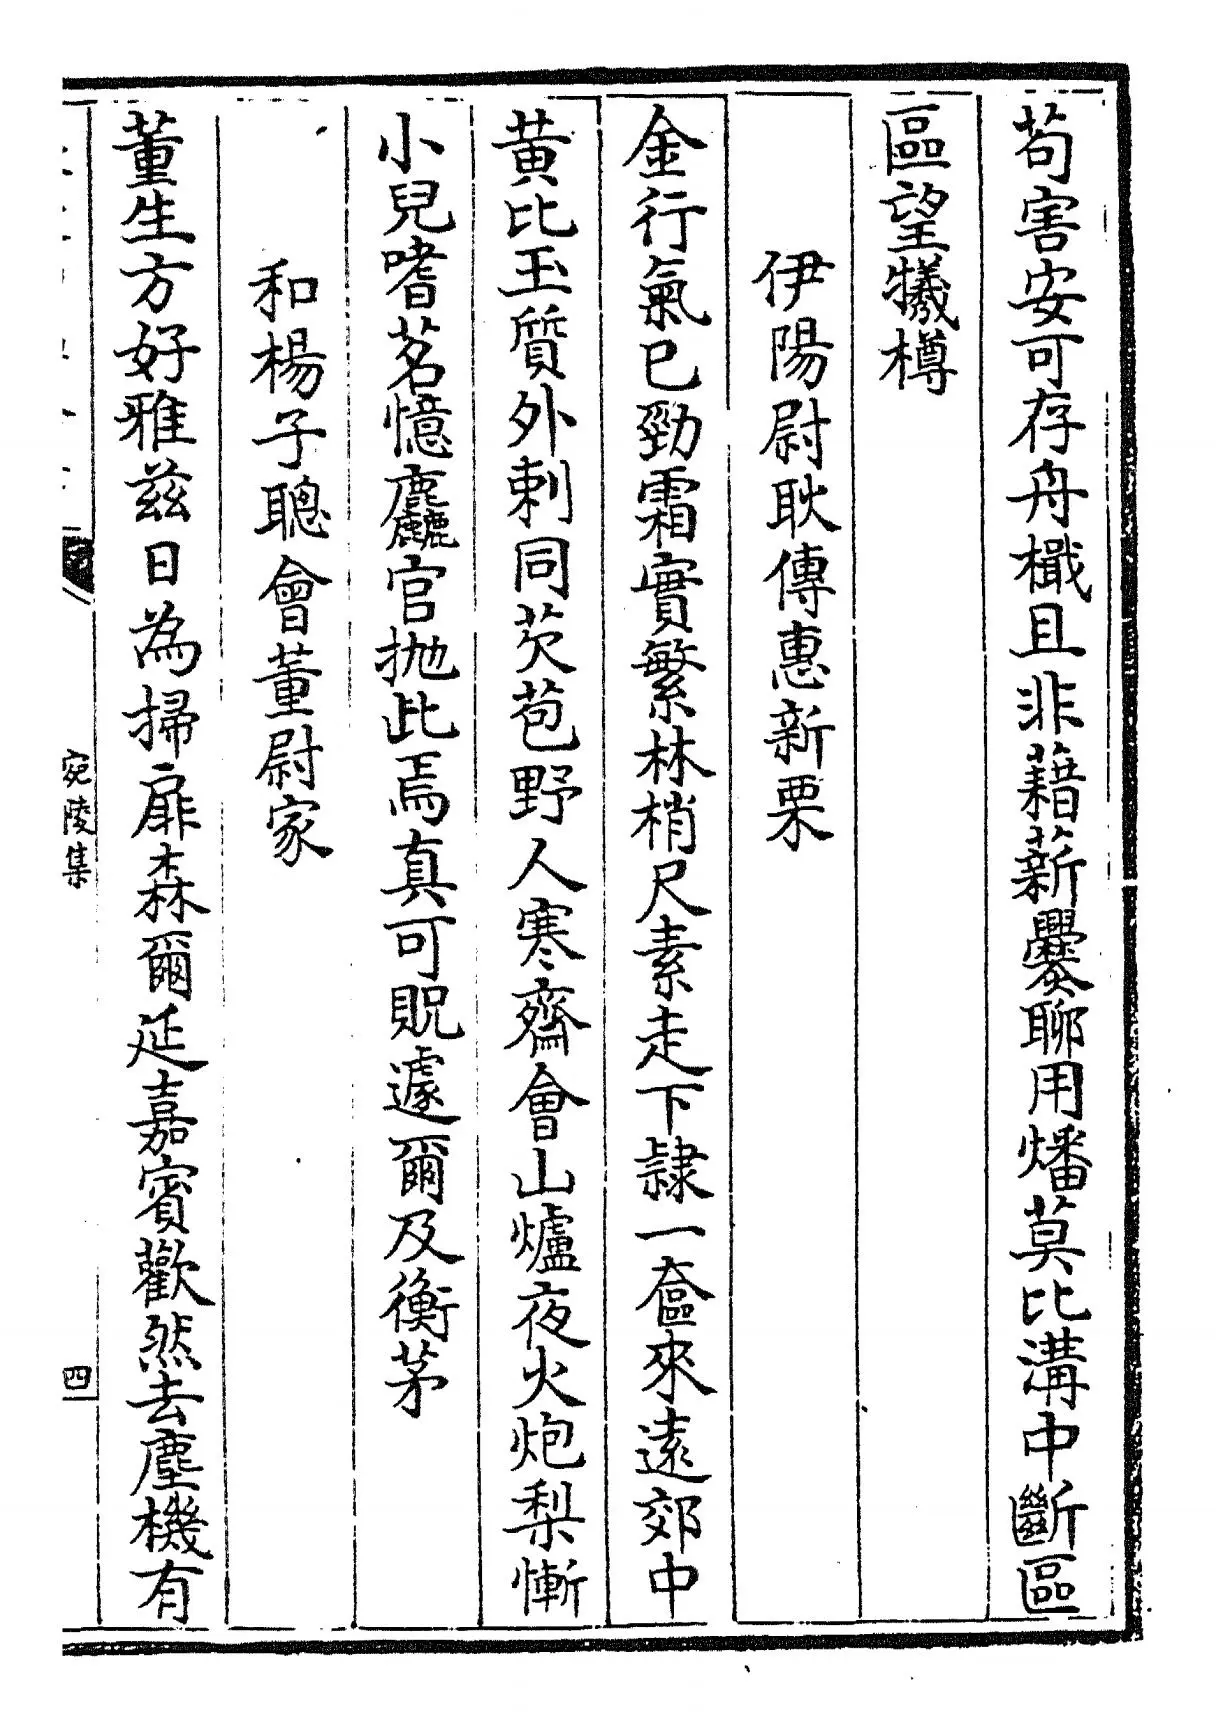 苟害安可存舟檝且非藉薪爨聊用燔莫比溝中斷區
區望犧樽
伊陽尉耿傳惠新栗
金行氣已勁霜實繁林梢尺素走下隷一奩來遠郊中
黄比玉質外刺同芡苞野人寒齋會山爐夜火炮梨慚
小兒嗜茗憶麤官抛此焉真可貺遽爾及衡茅
和楊子聰會董尉家
董生方好雅兹日為掃扉森爾延嘉賓歡然去塵機有
宛陵集
四